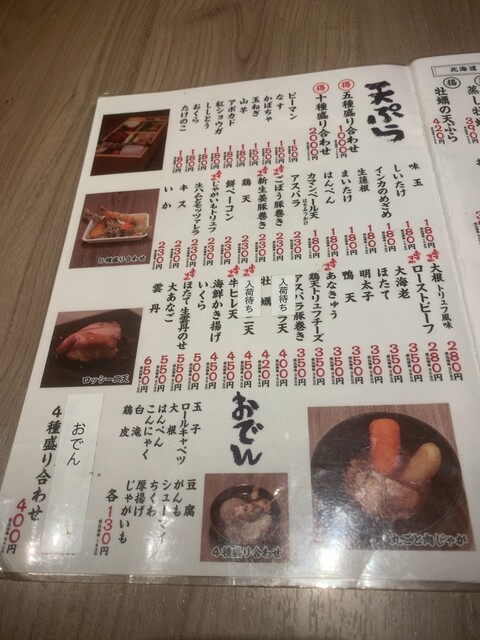 天ぷら
得 五種盛り合わせ 1000円
得 十種盛り合わせ 2000円
ピーマン 150円
なす 150円
かぼちゃ 150円
玉ねぎ 150円
山芋 150円
アボカド 180円
紅ショウガ 180円
ししとう 180円
おくら 180円
たけのこ 180円
味玉 180円
しいたけ 180円
インカのめざめ 180円
生蓮根 180円
まいたけ 180円
はんぺん 180円
カマンベール天 はちみつがけ 180円
アスパラ 180円
ごぼう豚巻き 230円
新生姜豚巻き 230円
鶏天 230円
餅ベーコン 230円
じゃがいもトリュフ 230円
生ハムとモッツァレラ 230円
キス 230円
いか 230円
大根トリュフ風味 280円
ローストビーフ 280円
大海老 350円
ほたて 350円
明太子 350円
鴨天 350円
あなきゅう 350円
鶏天トリュフチーズ 350円
アスパラ豚巻き 350円
入荷待ち ラ天 400円
牡蠣 420円
入荷待ち 二天 450円
牛ヒレ天 450円
海鮮かき揚げ 450円
いくら 550円
ほたて生雲丹のせ 550円
大あなご 550円
雲丹 650円
五種盛り合わせ
ロッシーニ天
おでん
玉子
ロールキャベツ
大根
はんぺん
こんにゃく
白滝
鶏皮
豆腐
がんも
シューマイ
ちくわ
厚揚げ
じゃがいも
各130円
おでん
4種盛り合わせ 400円
4種盛り合わせ
丸ごと肉じゃが
北海道
得
牡蠣の天ぷら 420円
蒸し牡 390円